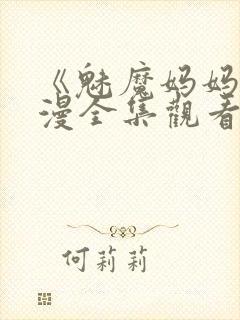 《魅魔妈妈
漫全集觀看
何莉莉